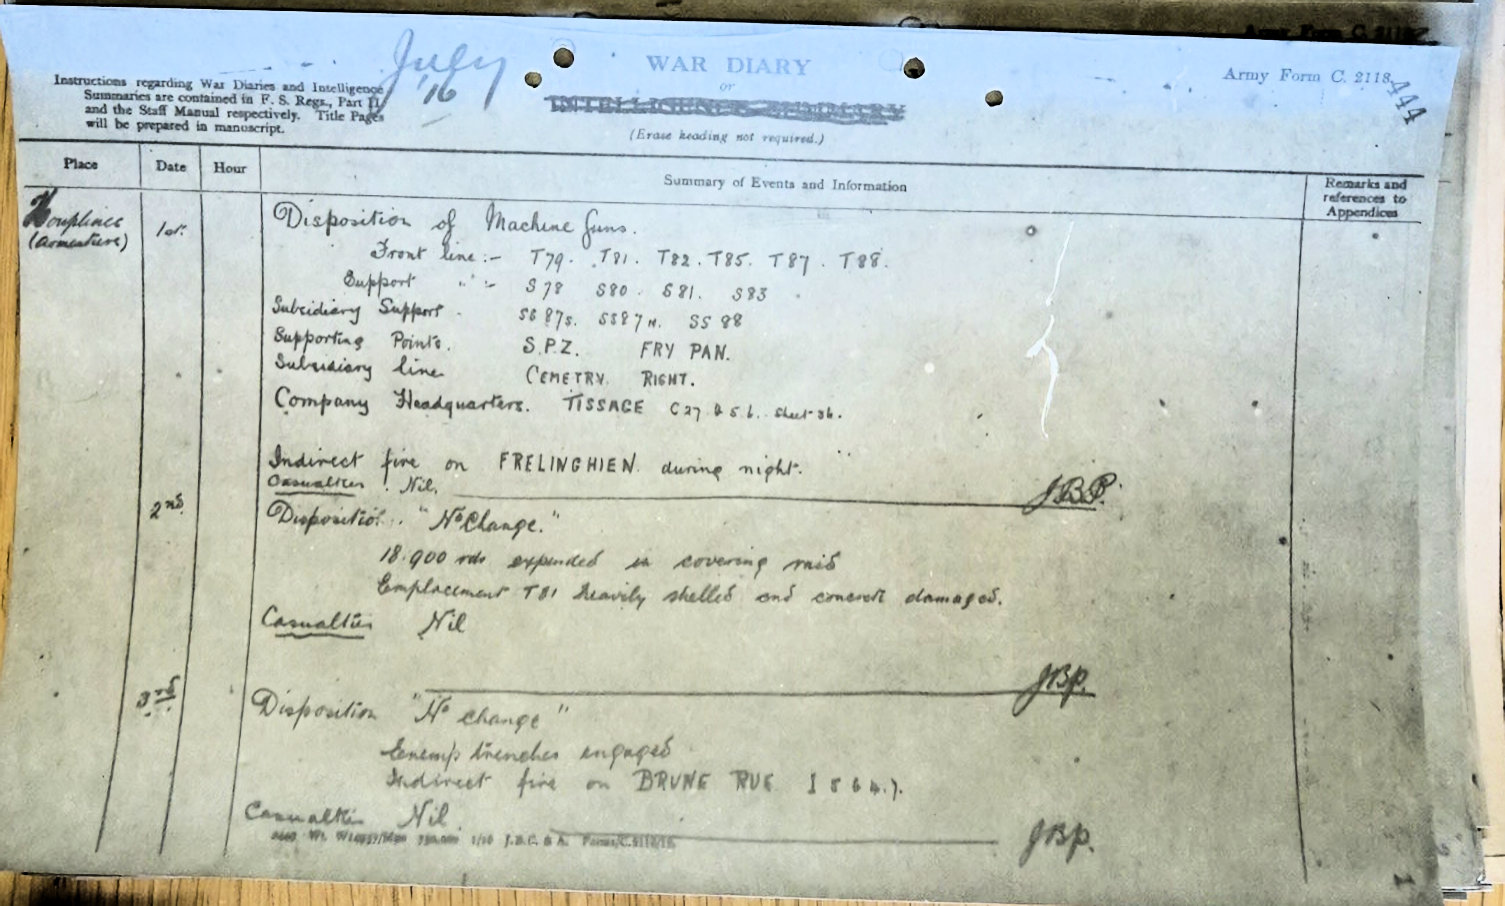 Army Form C. 2118.
July
'16
Instructions regarding War Diaries and Intelligence
Summaries are contained in F. S. Regs., Part II.
and the Staff Manual respectively. Title Pages
will be prepared in manuscript.
WAR DIARY
or
INTELLIGENCE SUMMARY
(Erase heading not required.)
Army Form C. 2118.
444
Place Date Hour Summary of Events and Information Remarks and references to Appendices
Houplines
(Armentiere)
1st. Disposition of Machine Guns.
Front line :- T79. T81. T82. T85. T87. T88.
Support " :- S78 S80. S81. S83
Subsidiary Support SS87S. SS87N. SS88
Supporting Points. S.P.Z. FRY PAN.
Subsidiary line CEMETRY. RIGHT.
Company Headquarters. TISSAGE C27 Sheet 36.
Indirect fire on FRELINGHIEN during night.
Casualties. Nil. JBP.
2nd. Disposition. "No Change."
18.900 rds expended in covering raid
Emplacement T81 heavily shelled and concrete damaged.
Casualties Nil
JBP.
3rd. Disposition "No change"
Enemy trenches engaged
Indirect fire on BRUNE RUE
Casualties Nil.
JBP.
1/16 J.B.C. & A. Forms/C.2118/
1